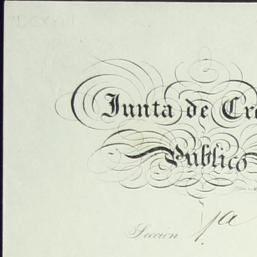 Junta de Cre
Publico
Seccion 1a